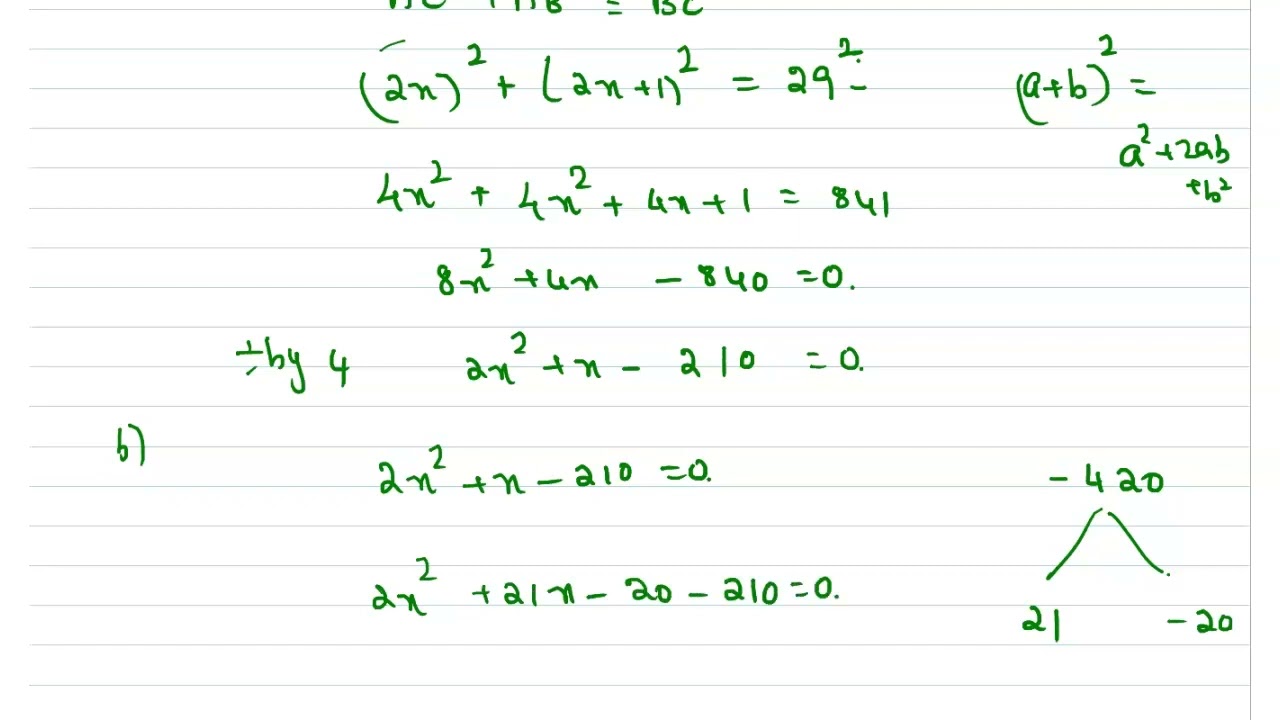 (2x)² + (2x+1)² = 29²
(a+b)² =
a² + 2ab
+b²
4x² + 4x² + 4x + 1 = 841
8x² + 4x - 840 = 0.
÷by 4 2x² + x - 210 = 0.
b)
2x² + x - 210 = 0.
- 420
2x² + 21x - 20 - 210 = 0.
21 - 20